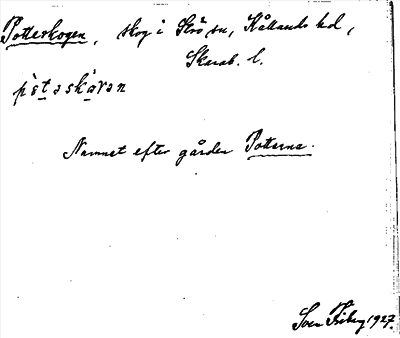 Potterskogen, skog i Strö sn, Kållands hd,
Skarab. l.
pètəskávən
Namnet efter gården Potterna.
Sven Friberg 1927.